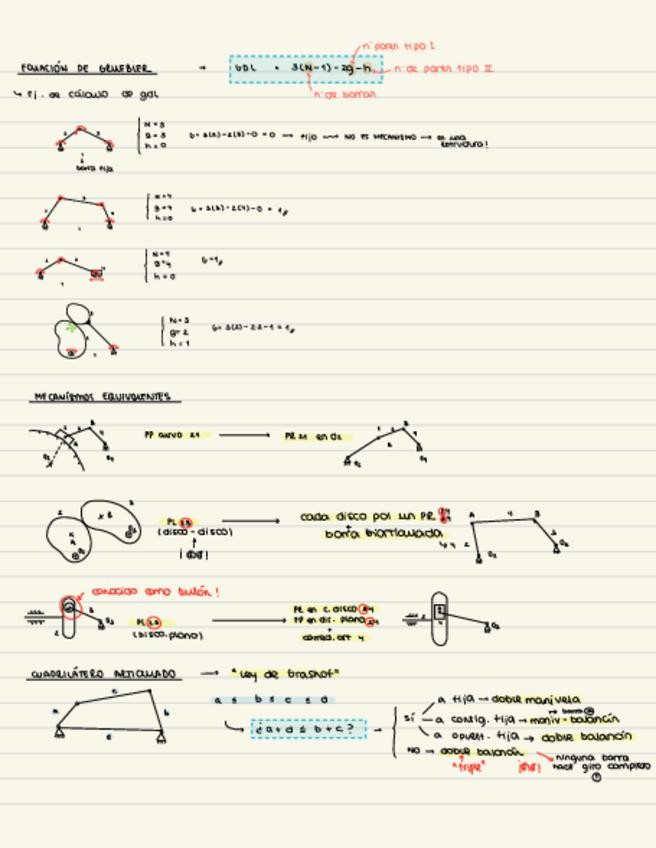 ECUACIÓN DE GRUEBLER → GDL = 3(N-1) - 2g - h
nº pares tipo I
nº de pares tipo II
nº de barras
↳ Ej. de cálculo de gdl
N = 3
g = 3
h = 0
G = 3(2) - 2(3) - 0 = 0 → fijo → NO ES MECANISMO → es una estructura!
barra fija
N = 4
g = 4
h = 0
G = 3(3) - 2(4) - 0 = 1
N = 4
g = 4
h = 0
G = 1
N = 3
g = 2
h = 1
G = 3(2) - 2·2 - 1 = 1
MECANISMOS EQUIVALENTES
PP curvo 24 → PR 24 en O2
PL 23 → cada disco por un PR
(disco-disco) + barra biarticulada
¡OJO!
conocido como bulón!
PL 23
(disco, plano)
PR en c. disco 34
PP en dir. plano 24
+
4
CUADRILÁTERO ARTICULADO → "Ley de Grashof"
a ≤ b ≤ c ≤ d
¿a + d ≤ b + c? →
SÍ
a fija → doble manivela
a contig. fija → maniv-balancín
a opuest. fija → doble balancín
NO → doble balancín
"triple" ¡OJO! ninguna barra hace giro completo